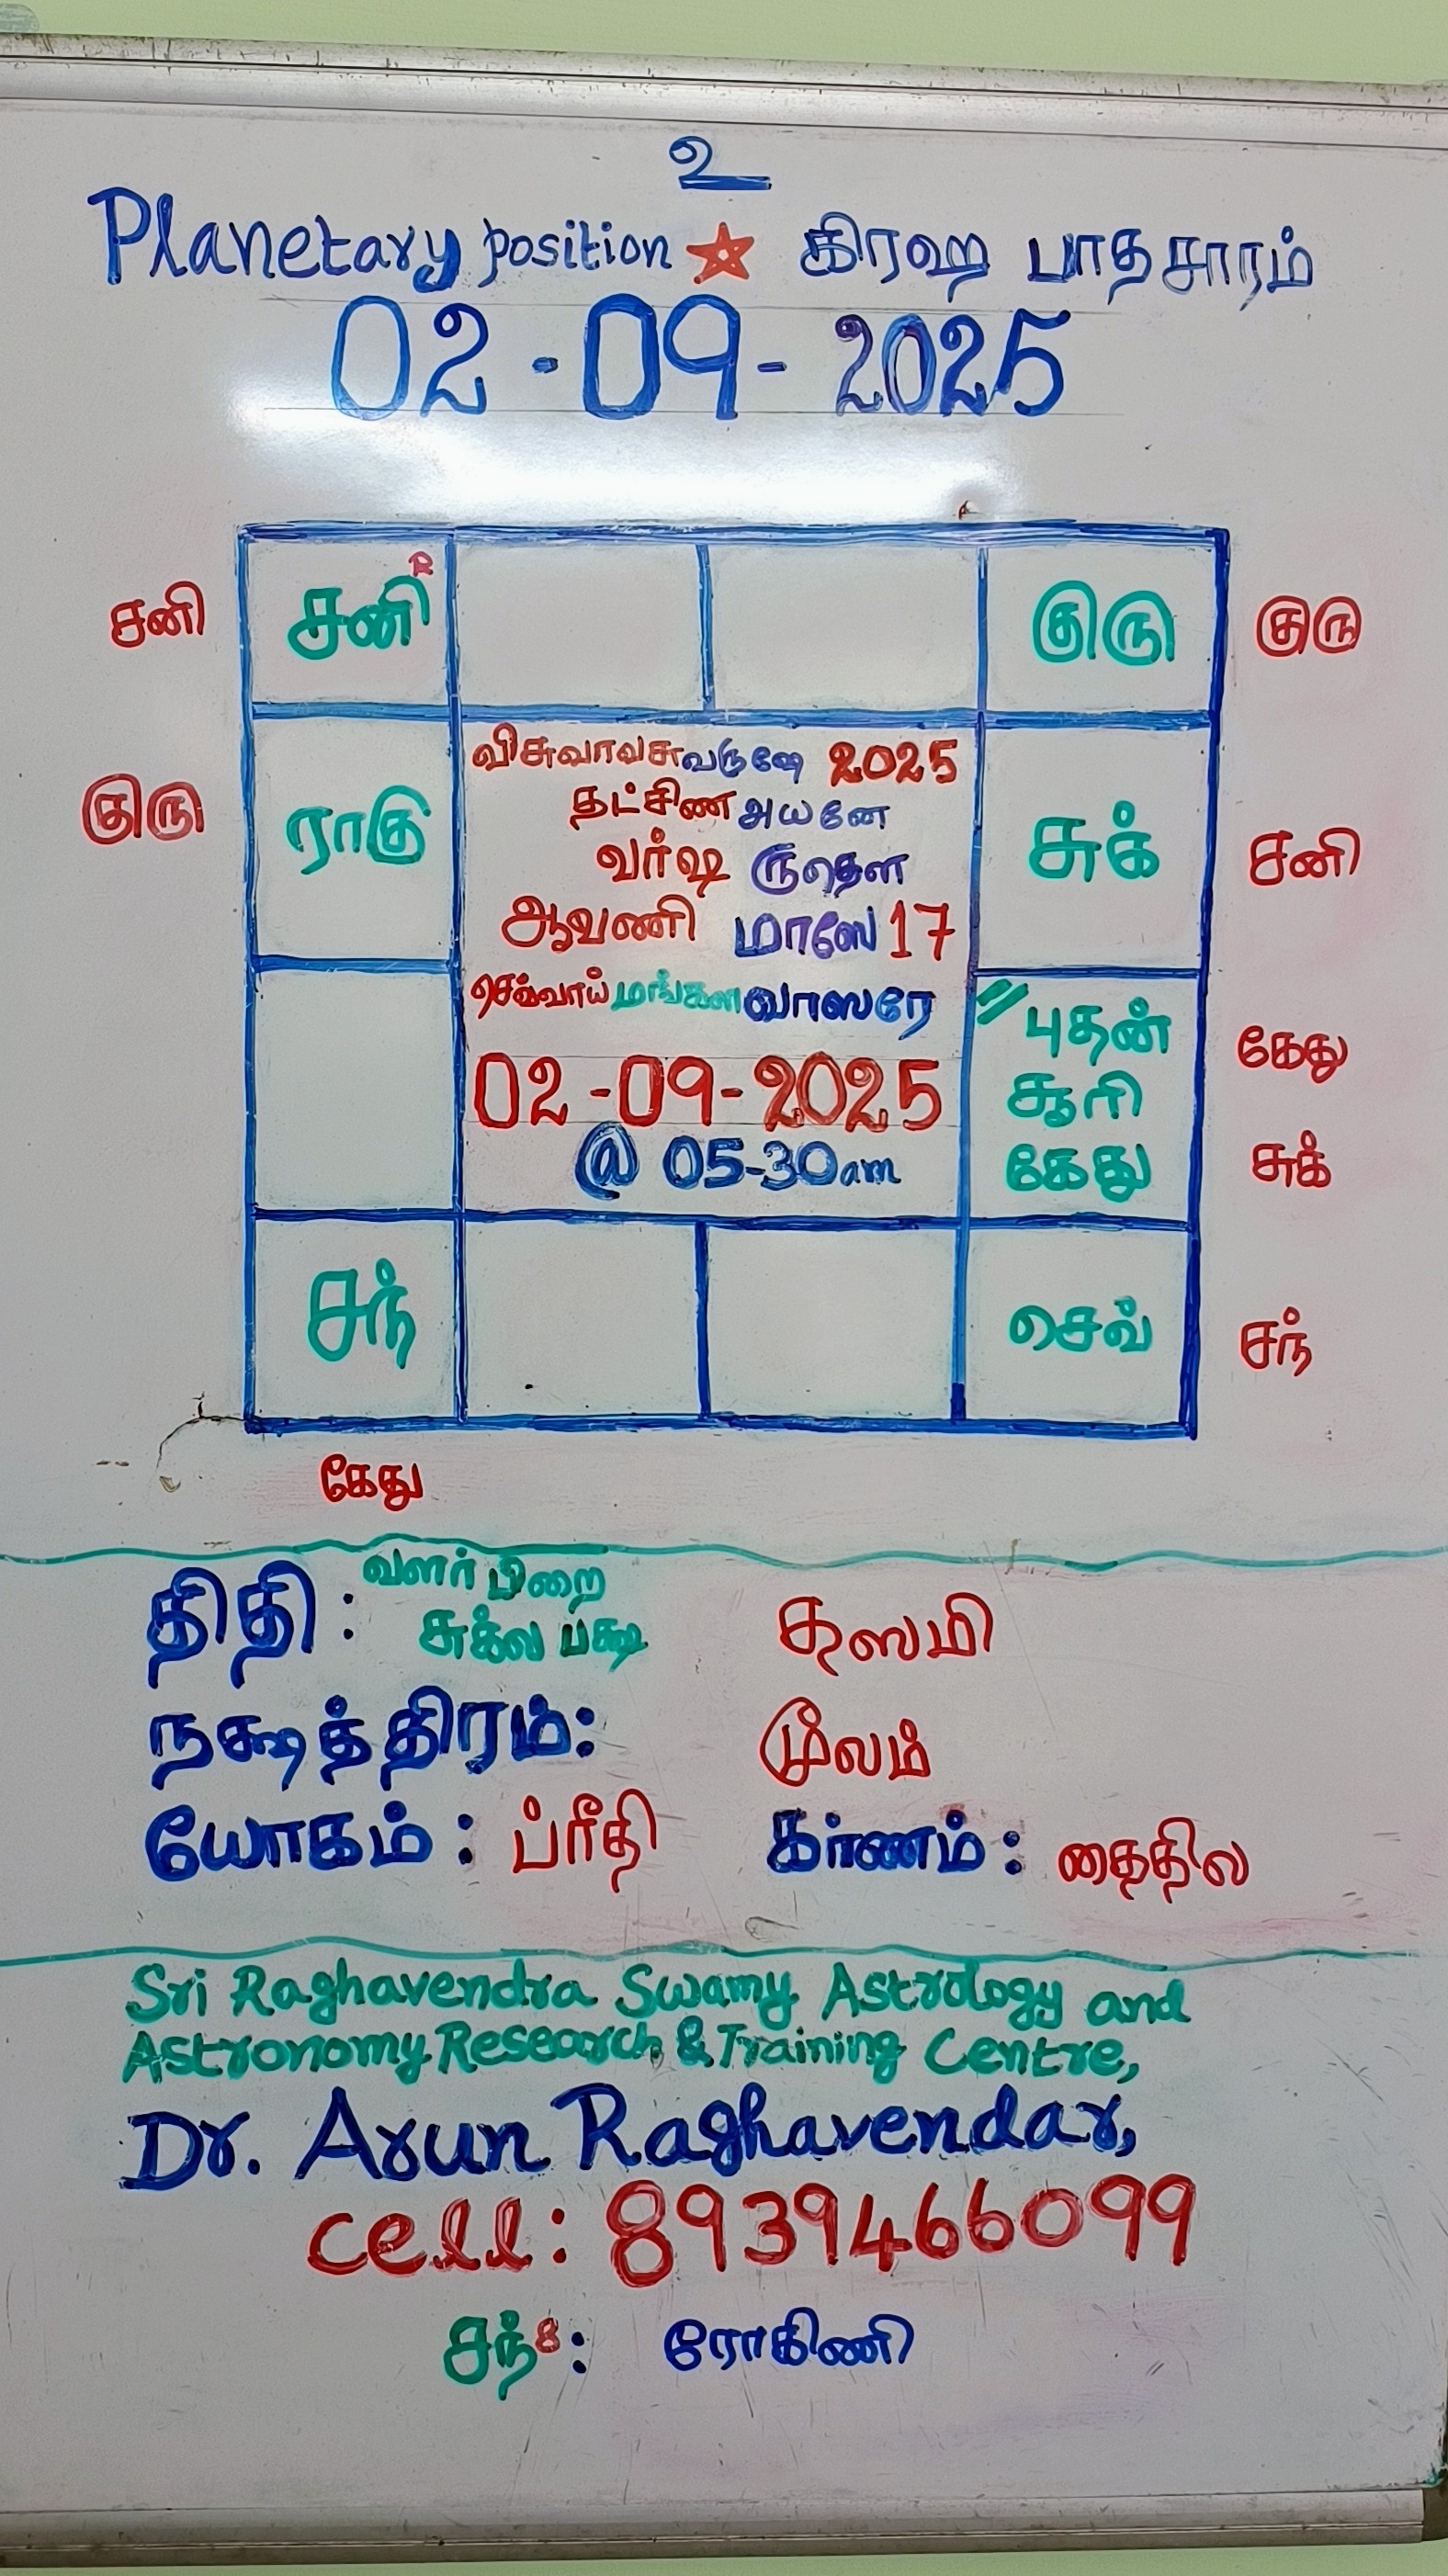 உ
Planetary position கிரஹ பாதசாரம்
02-09-2025
சனி சனி R குரு குரு
விசுவாவசு வருஷே 2025
தட்சிண அயனே
குரு ராகு வர்ஷ ருதௌ சுக் சனி
ஆவணி மாஸே 17
செவ்வாய் மங்கள வாஸரே
புதன் கேது
02-09-2025 சூரி
@ 05-30am கேது சுக்
சந் செவ் சந்
கேது
வளர் பிறை
திதி : சுக்ல பக்ஷ தஸமி
நக்ஷத்திரம்: மூலம்
யோகம் : ப்ரீதி கர்ணம் : தைதில
Sri Raghavendra Swamy Astrology and
Astronomy Research & Training Centre,
Dr. Arun Raghavendar,
cell: 8939466099
சந்8: ரோகிணி